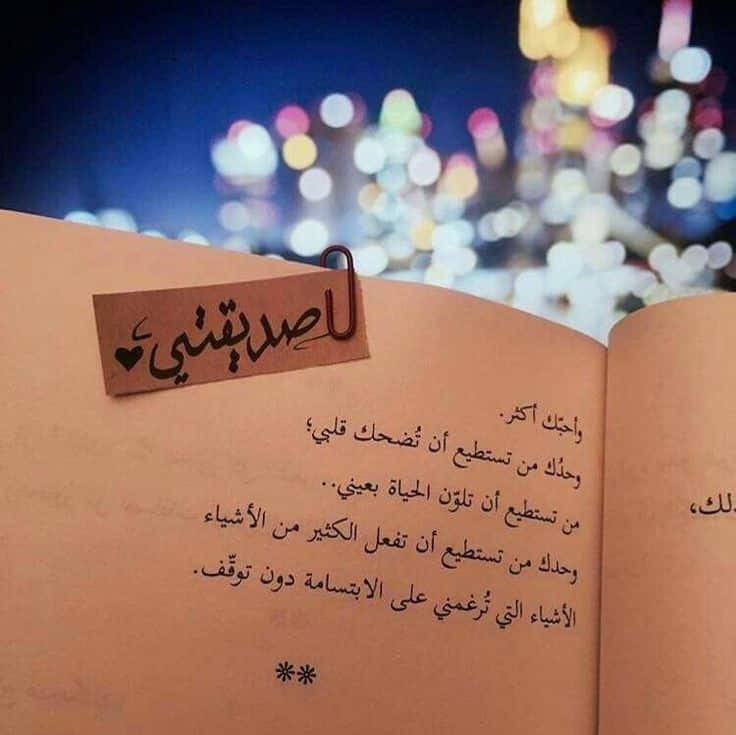 لـ صديقتي
وأحبّك أكثر.
وحدُك من تستطيع أن تُضحك قلبي؛
من تستطيع أن تلوّن الحياة بعيني..
وحدك من تستطيع أن تفعل الكثير من الأشياء
الأشياء التي تُرغمني على الابتسامة دون توقّف.
**